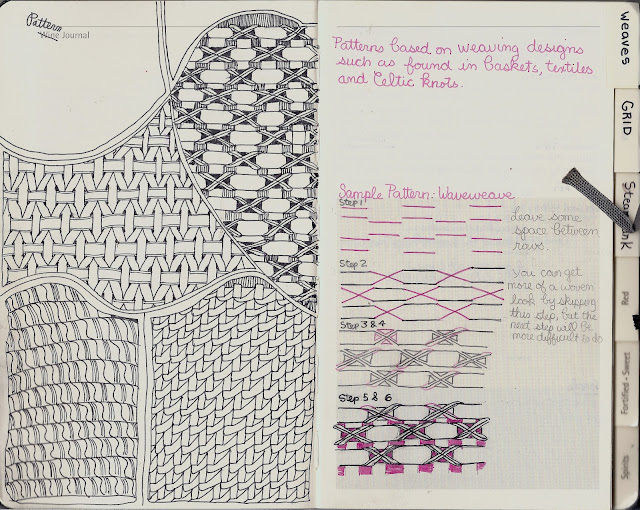 Pattern
Wine Journal
Patterns based on weaving designs
such as found in baskets, textiles
and Celtic knots.
Sample Pattern: Waveweave
Step 1
Leave some
space between
rows.
Step 2
you can get
more of a woven
look by skipping
this step, but the
next step will be
more difficult to do
Step 3 & 4
Step 5 & 6
weaves
GRID
Red
Fortified - Sweet
Spirits